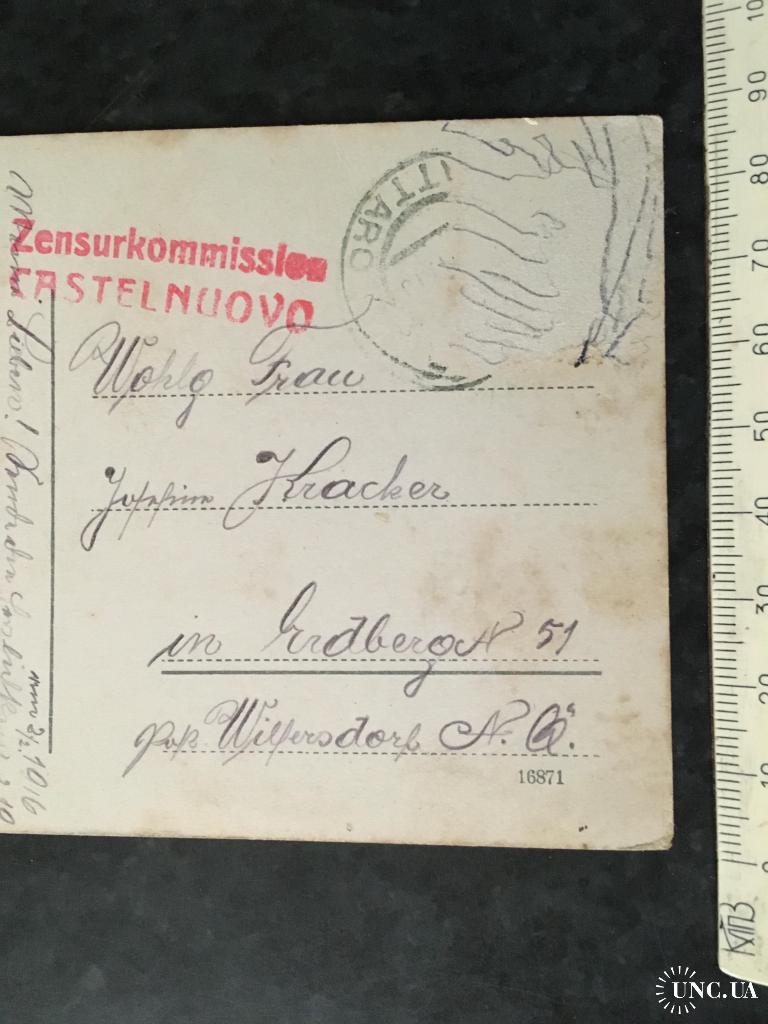 Zensurkommission
CASTELNUOVO
UTTARO
Wohlg Frau
Josefine Kracker
in Erdberg N 51
post Wilfersdorf N. Ö.
16871
Meine Lieben!
vom 2/2. 1916
0 10 20 30 40 50 60 70 80 90 10
UNC.UA